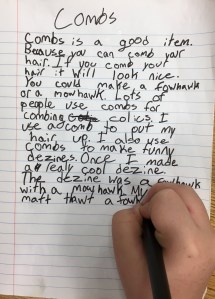 Combs
Combs is a good item.
Because you can comb your
hair. If you comb your
hair it will look nice.
You could make a fowhawk
or a mowhawk. Lots of
people use combs for
combing colics. I
use a comb to put my
hair up. I also use
combs to make funny
dezines. Once I made
a realy cool dezine.
The dezine was a fowhawk
with a mowhawk. My
matt thwt a fowh